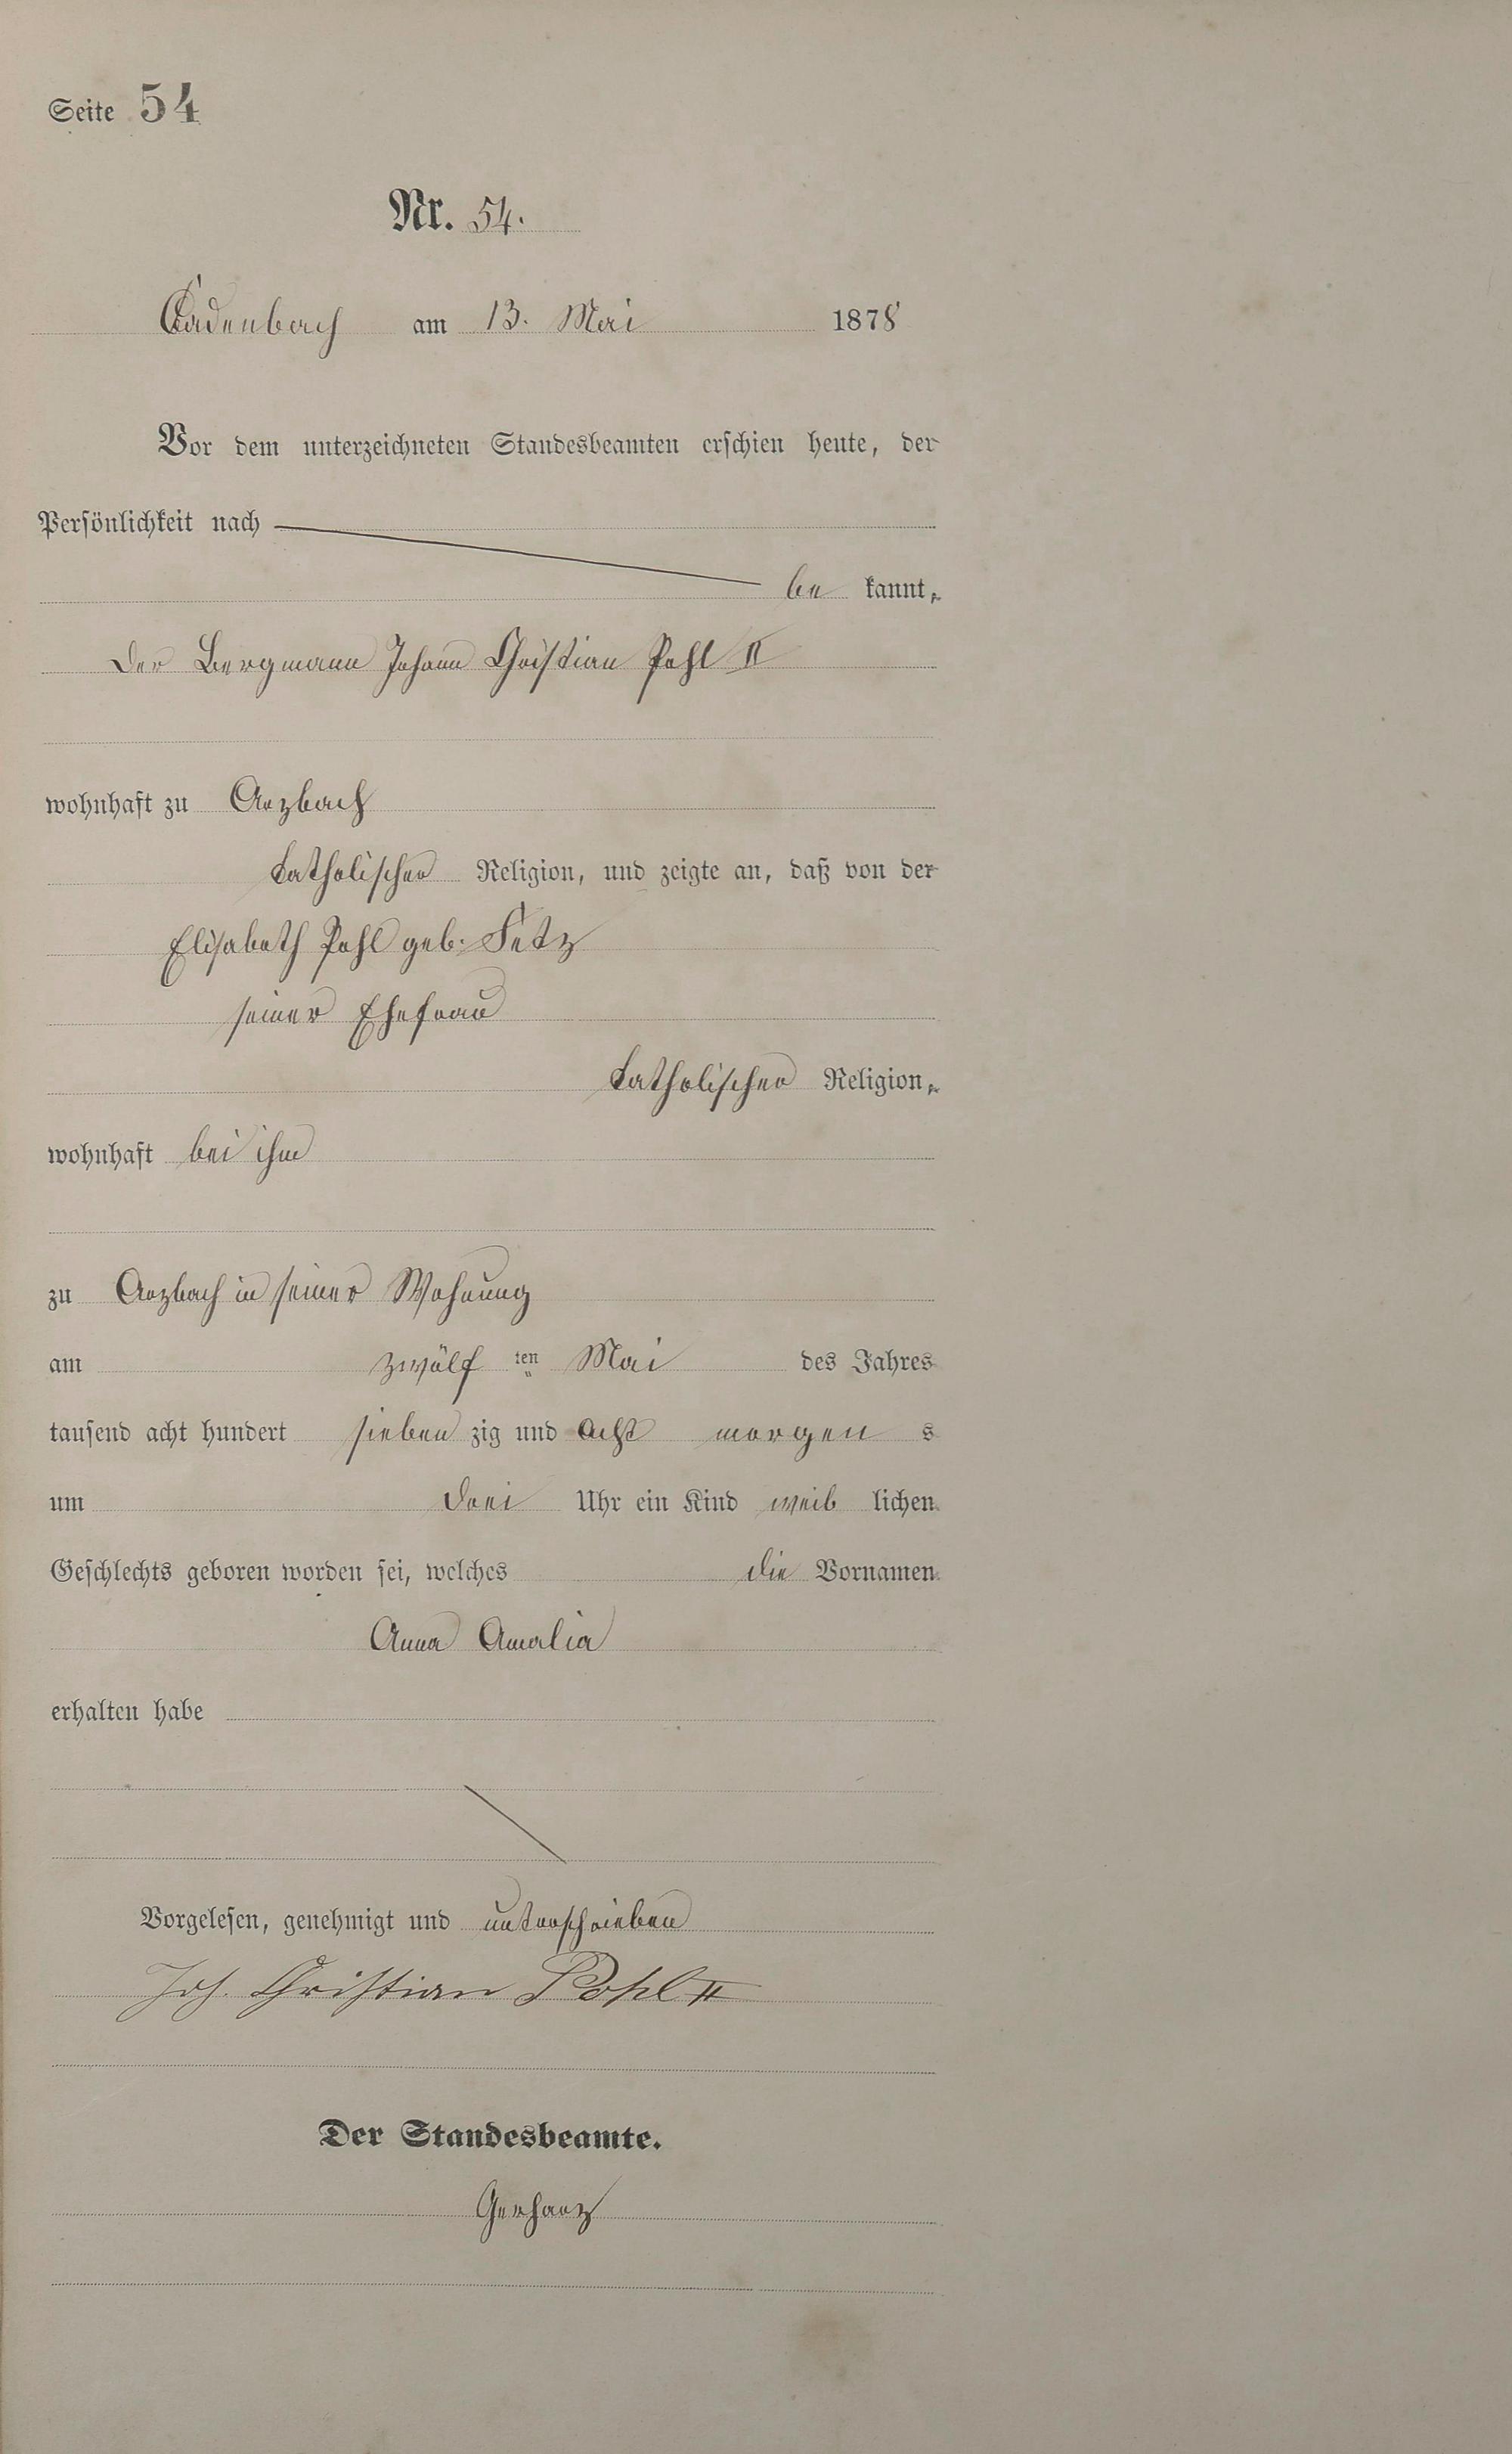 Seite 54
Nr. 54.
Cadenbach am 13. Mai 1878
Vor dem unterzeichneten Standesbeamten erschien heute, der
Persönlichkeit nach
be kannt,
der Bergmann Johann Christian Pohl II
wohnhaft zu Arzbach
katholischer Religion, und zeigte an, daß von der
Elisabeth Pohl geb. Fetz
seiner Ehefrau
katholischer Religion,
wohnhaft bei ihm
zu Arzbach in seiner Wohnung
am zwölf ten Mai des Jahres
tausend acht hundert sieben zig und acht morgen s
um drei Uhr ein Kind weib lichen
Geschlechts geboren worden sei, welches die Vornamen
Anna Amalia
erhalten habe
Vorgelesen, genehmigt und unterschrieben
Joh. Christian Pohl II
Der Standesbeamte.
Gerharz